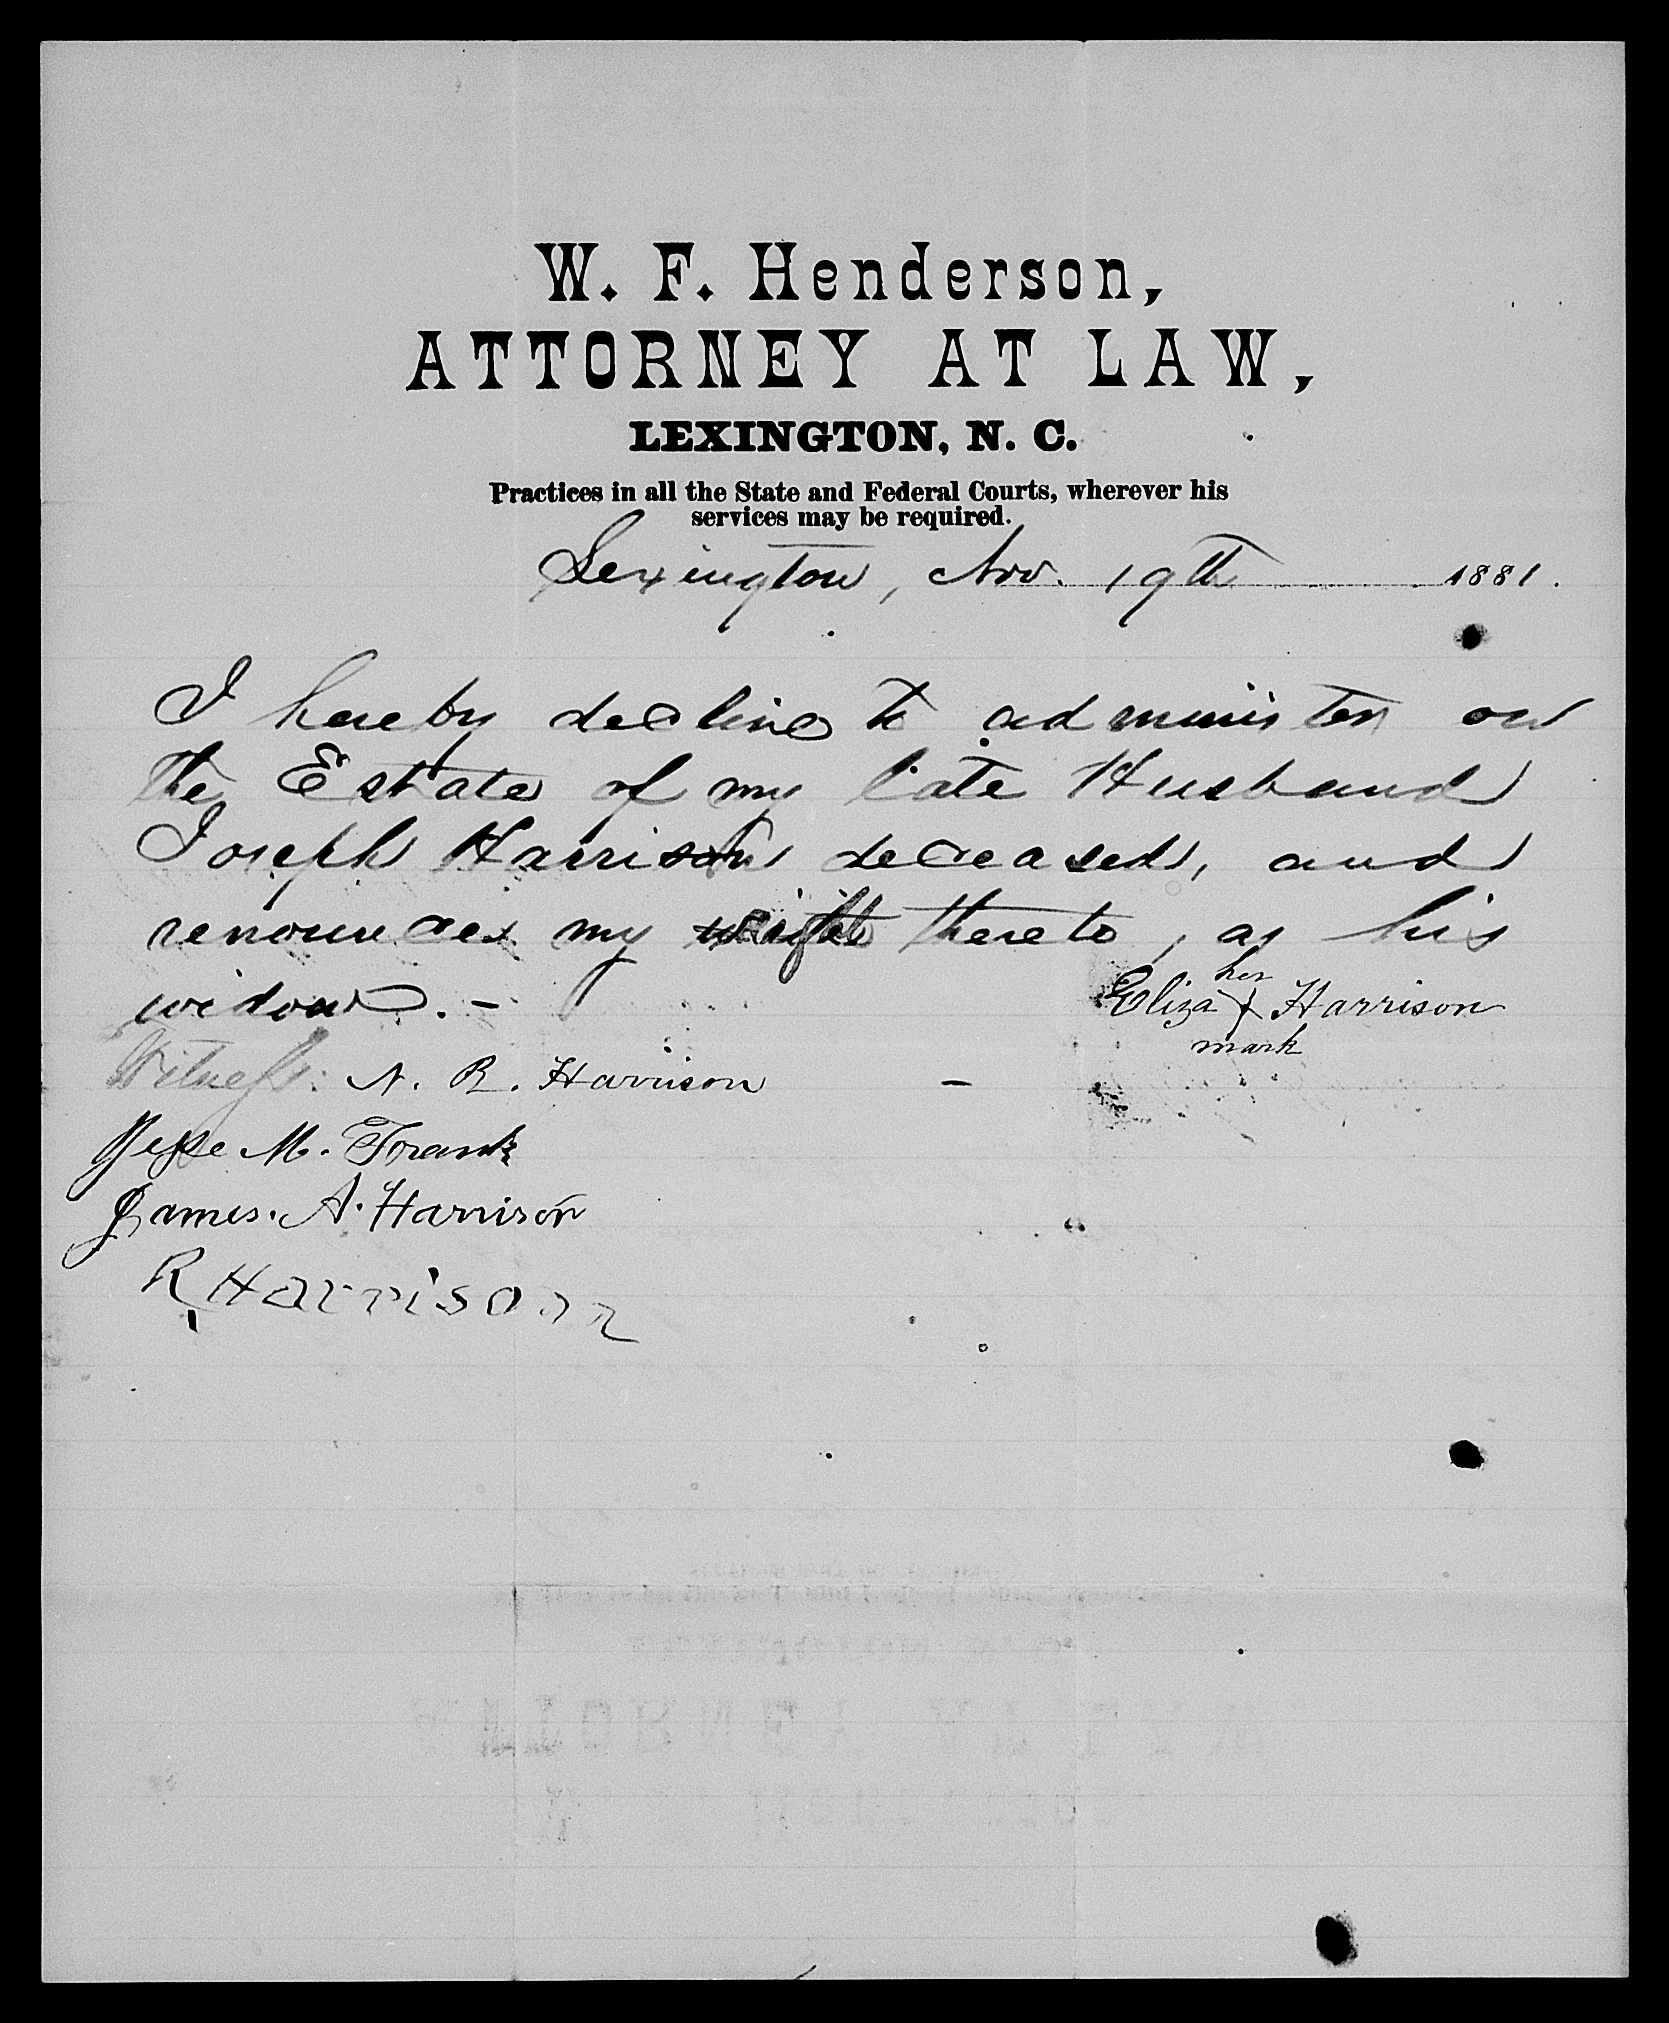 W. F. Henderson,
ATTORNEY AT LAW,
LEXINGTON, N. C.
Practices in all the State and Federal Courts, wherever his
services may be required.
Lexington, Nov. 19th 1881.
I hereby decline to administer on
the Estate of my late Husband
Joseph Harrison deceased, and
renounces my right thereto, as his
widow. -
her
Eliza X Harrison
mark
Witness: N. R. Harrison -
Jesse M. Frank
James. A. Harrison
R Harrison